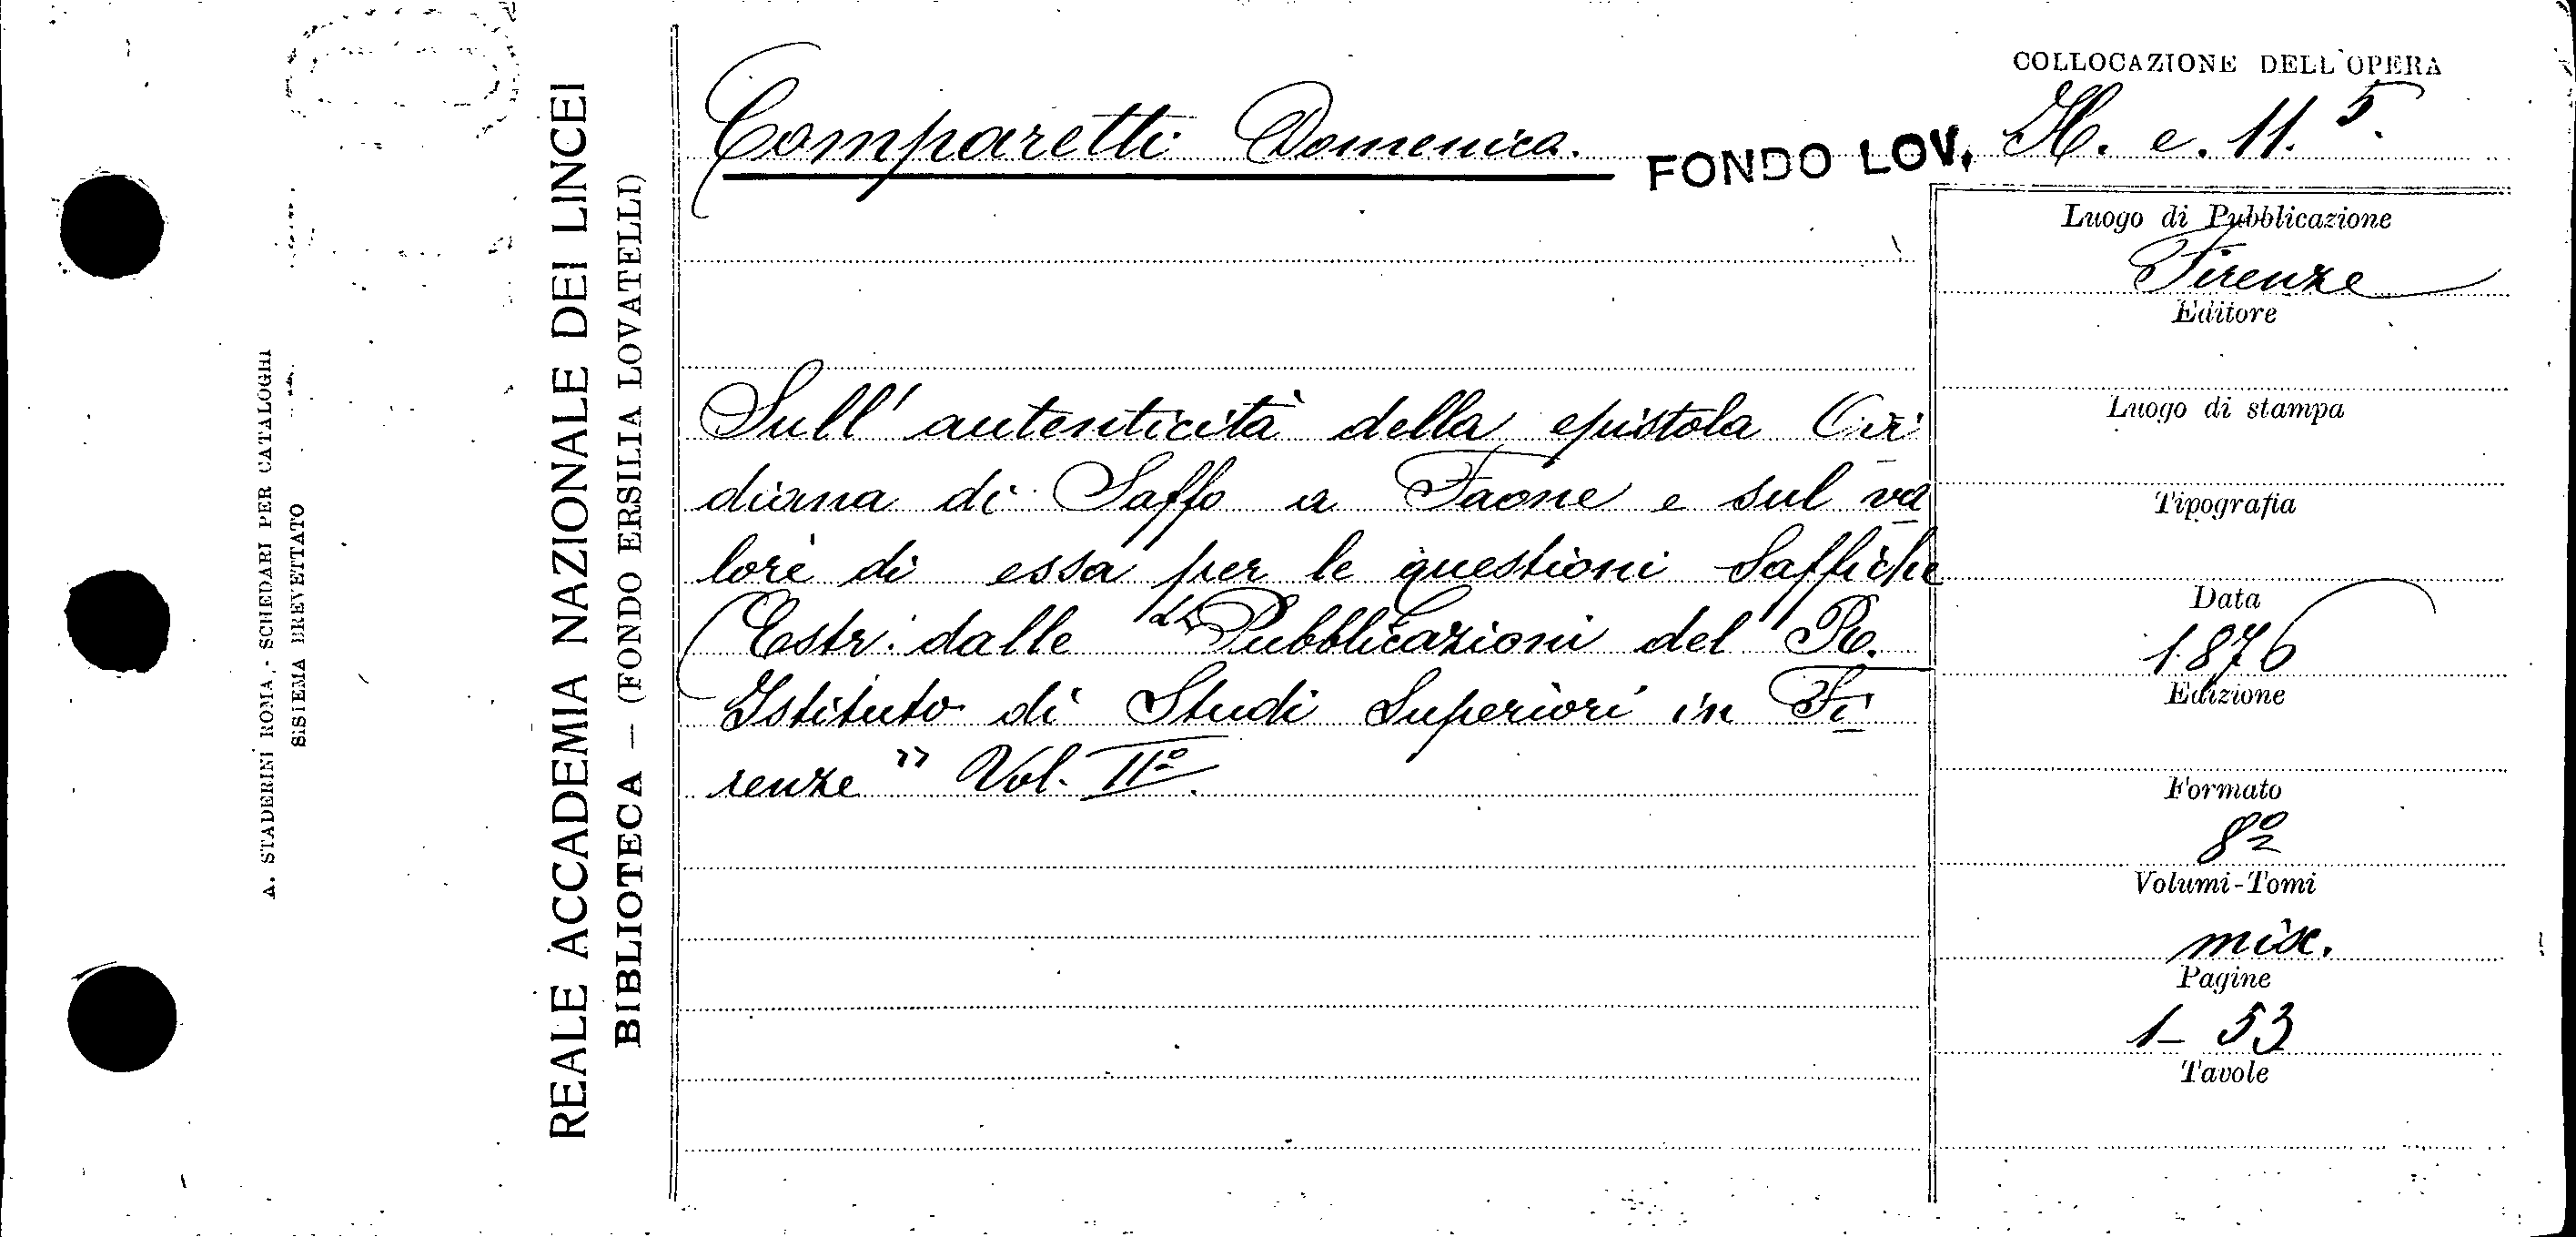 COLLOCAZIONE DELL'OPERA
Comparetti Domenica.
FONDO LOV. H. e. 11. 5.
Sull' autenticità della epistola Ovi
diana di Saffo a Faone e sul va
lore di essa per le questioni Saffiche
(Estr. dalle "Pubblicazioni del R.
Istituto di Studi Superiori in Fi
renze" Vol. IIº.
Luogo di Pubblicazione
Firenze
Editore
Luogo di stampa
Tipografia
Data
1876
Edizione
Formato
8º
Volumi-Tomi
misc.
Pagine
1-53
Tavole
REALE ACCADEMIA NAZIONALE DEI LINCEI
BIBLIOTECA — (FONDO ERSILIA LOVATELLI)
A. STADERINI ROMA. - SCHEDARI PER CATALOGHI
SISTEMA BREVETTATO